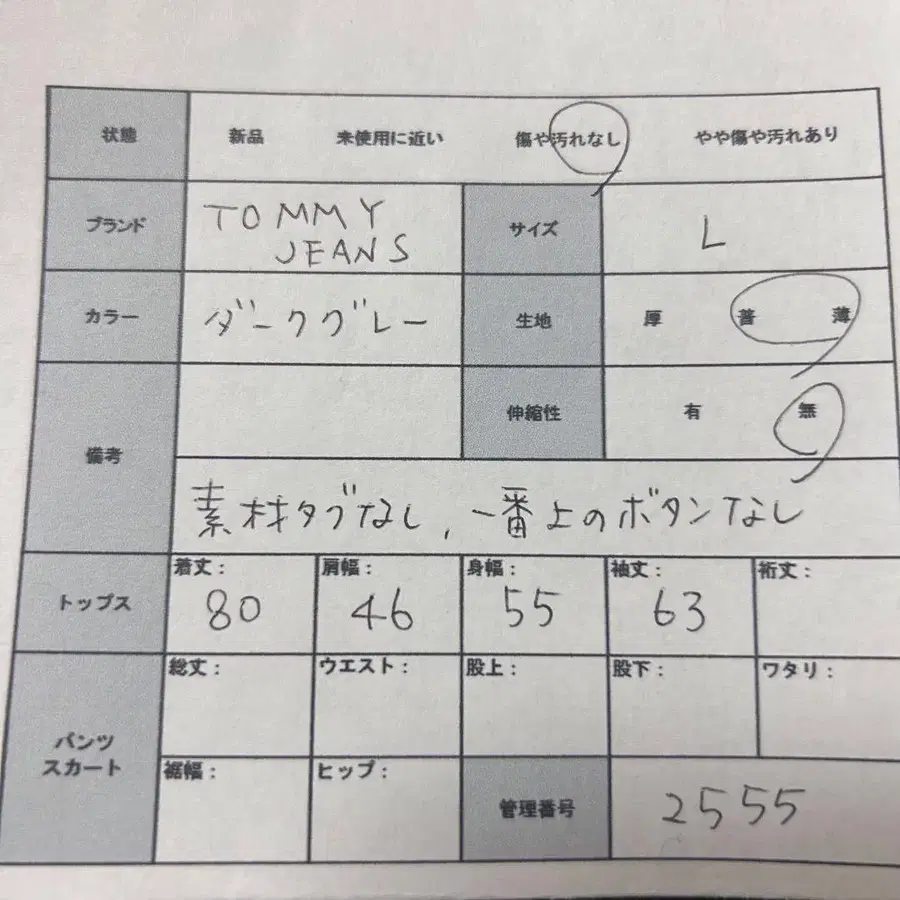 状態 新品 未使用に近い 傷や汚れなし やや傷や汚れあり
ブランド TOMMY JEANS サイズ L
カラー ダークグレー 生地 厚 普 薄
備考 伸縮性 有 無
素材タグなし,一番上のボタンなし
トップス 着丈: 80 肩幅: 46 身幅: 55 袖丈: 63 裄丈:
パンツ スカート 総丈: ウエスト: 股上: 股下: ワタリ:
裾幅: ヒップ: 管理番号 2555